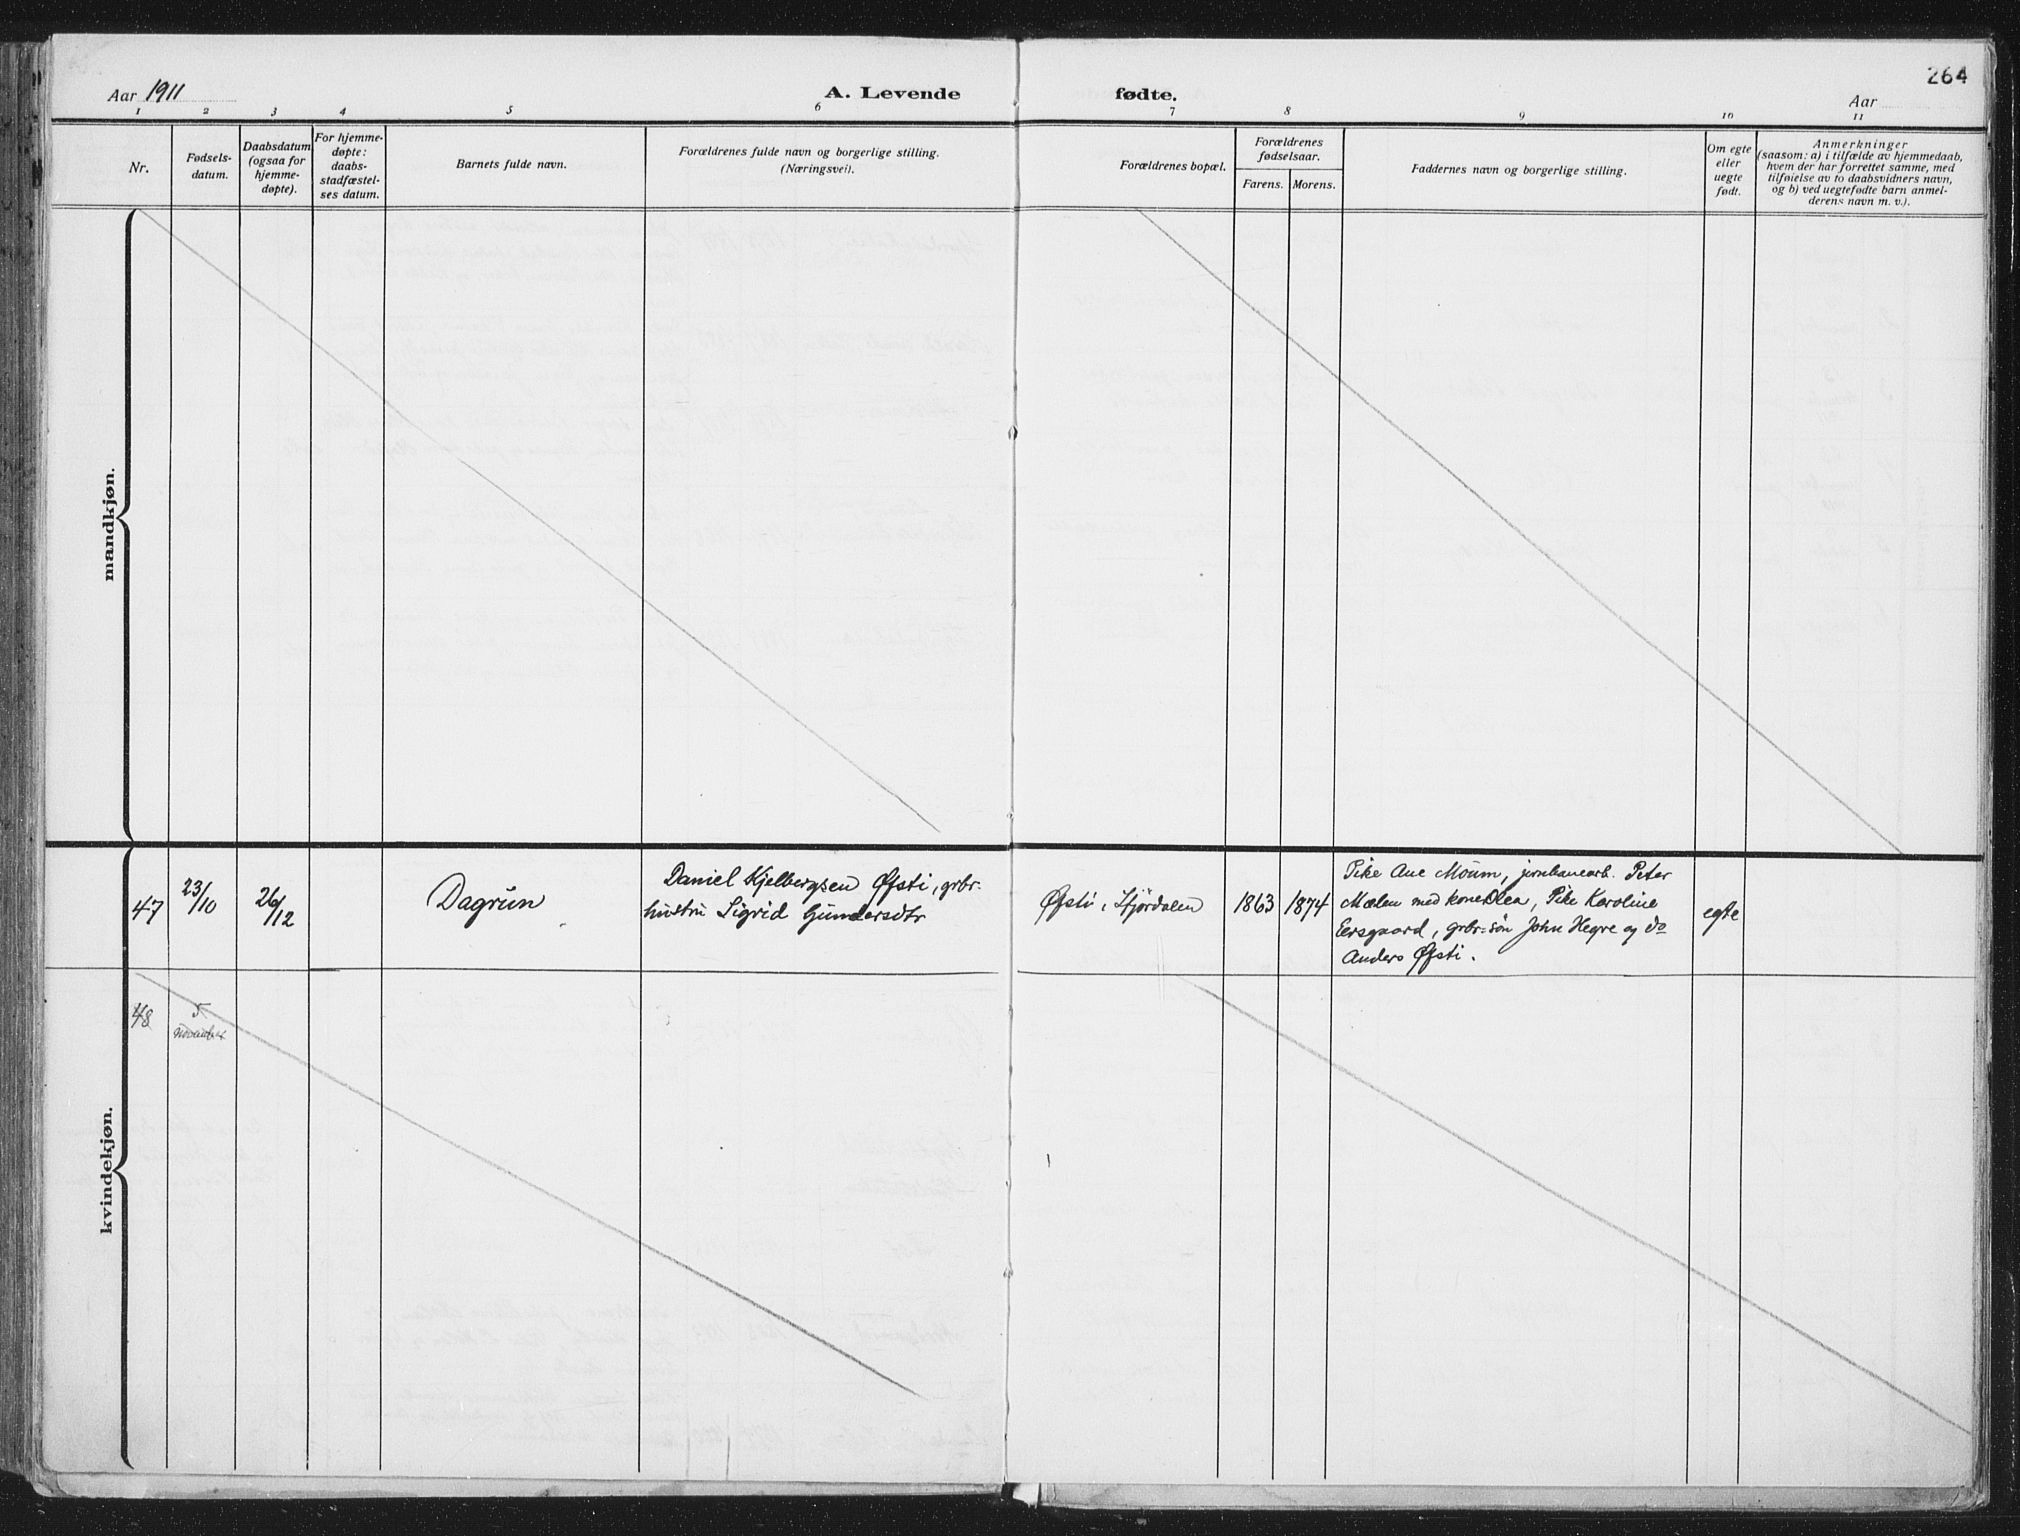 264
Aar 1911
A. Levende
fødte.
Aar
1 2 3 4 5 6 7 8 9 10 11
Nr.
Fødsels-
datum.
Daabsdatum
(ogsaa for
hjemme-
døpte).
For hjemme-
døpte:
daabs-
stadfæstel-
ses datum.
Barnets fulde navn.
Forældrenes fulde navn og borgerlige stilling.
(Næringsvei).
Forældrenes bopæl.
Forældrenes
fødselsaar.
Farens. Morens.
Faddernes navn og borgerlige stilling.
Om egte
eller
uegte
født.
Anmerkninger
(saasom: a) i tilfælde av hjemmedaab,
hvem der har forrettet samme, med
tilføielse av to daabsvidners navn,
og b) ved uegtefødte barn anmel-
derens navn m. v.).
mandkjøn.
kvindekjøn.
47
23/10
26/12
Dagrun
Daniel Kjelbergsen Øfsti, grbr.
hustru Sigrid Gundersdtr
Øfsti, Stjørdalen
1863
1874
Pike Ane Moum, jernbanearb. Peter
Mælen med kone Olea, Pike Karoline
Ersgaard, grbr.søn John Hegre og do
Anders Øfsti.
egte
48
5
november